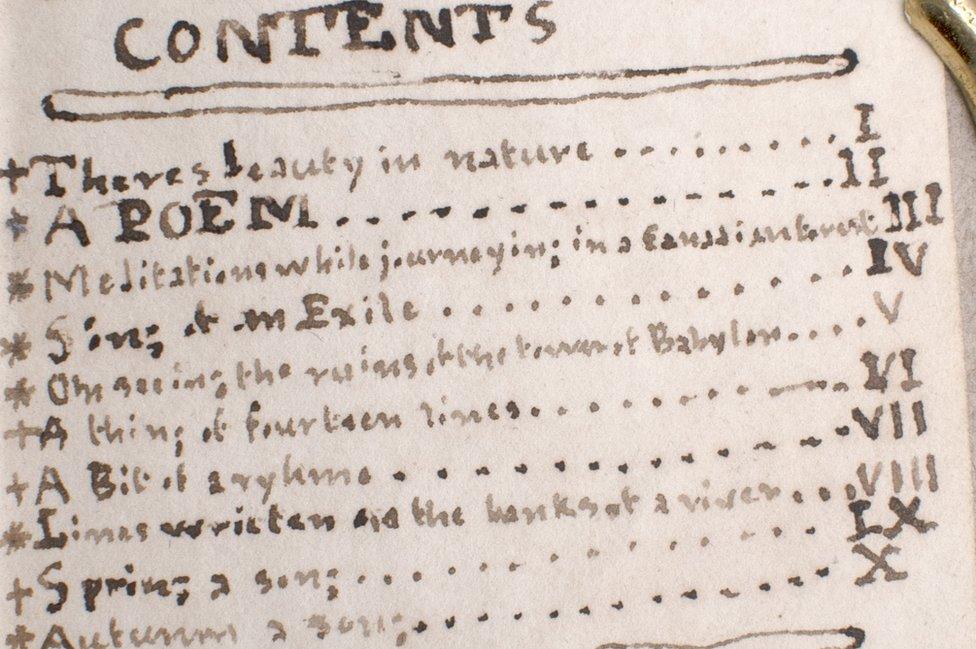 CONTENTS
+ Theres beauty in nature ........... I
* A POEM ................ II
* Meditations while journeying in a Canadian forest III
* Song of an Exile ............ IV
* On seeing the ruins of the tower of Babylon .... V
+ A thing of fourteen lines ............ VI
+ A Bit of a ryhme ............ VII
* Lines written on the banks of a river ... VIII
+ Spring a song ............ IX
* Autumn a song ............ X